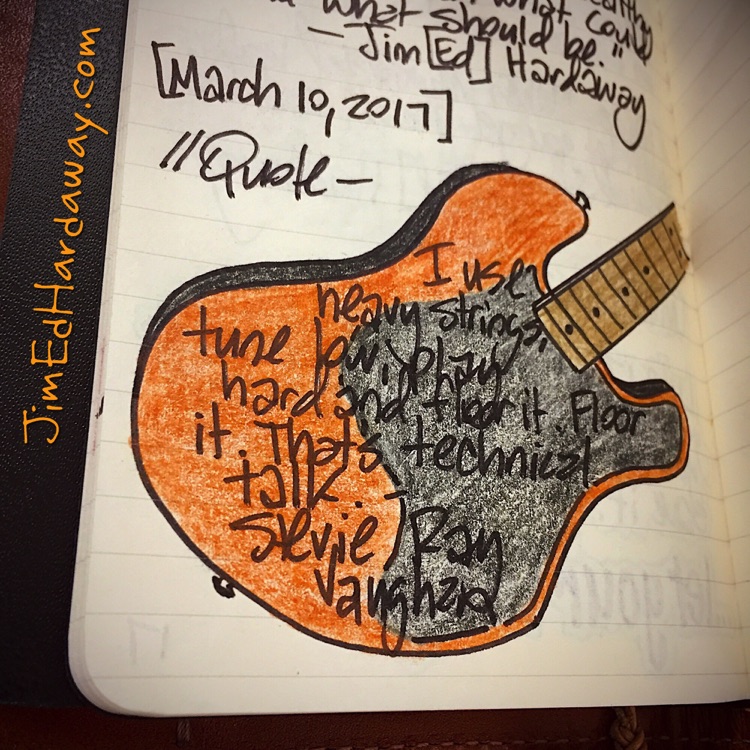 what could
what should be."
— Jim [Ed] Hardaway
[March 10, 2017]
//Quote —
I use
heavy strings,
tune low, play
hard and floor it. Floor
it. Thats technical
talk. -
Stevie Ray
Vaughan
JimEdHardaway.com